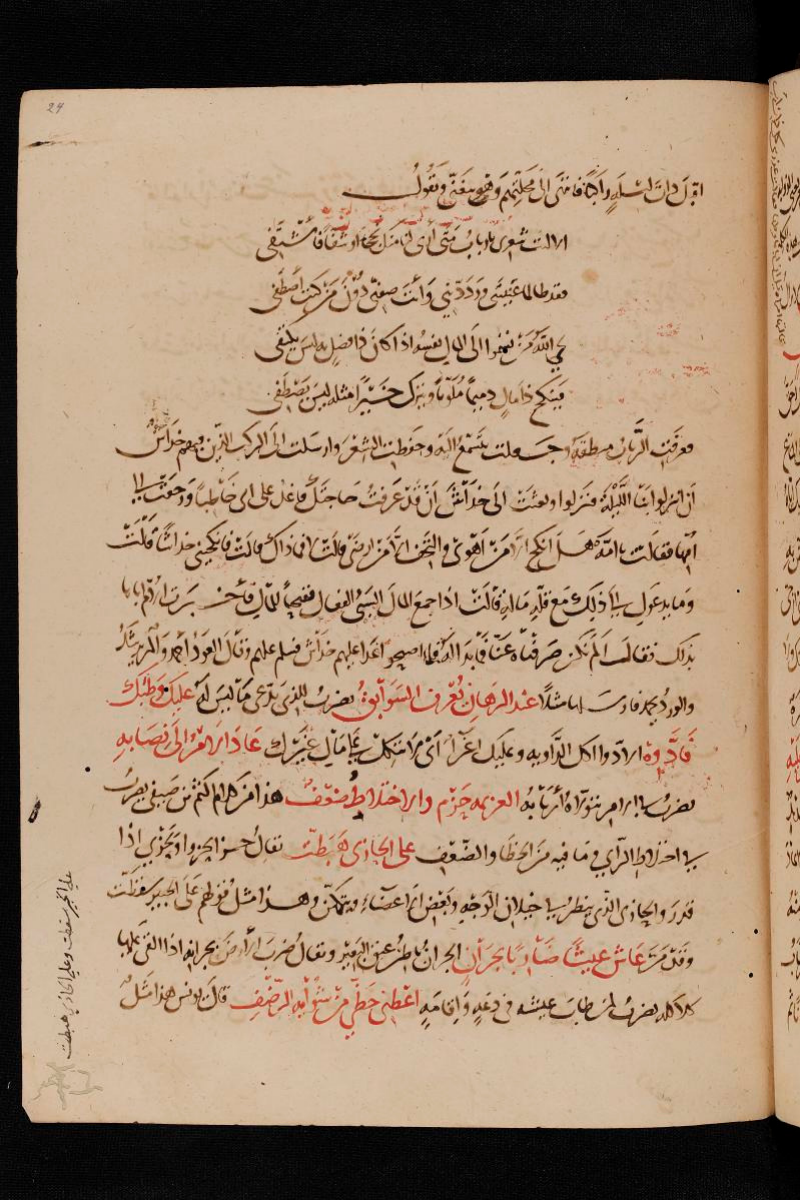 24
اقبل ذات ليلة راكبا فانتهى الى محلتهم وهو يتغنى ويقول
الا ليت شعرى يا رباب متى أرى لنا منك نجحا او شفاء فاشتفى
فقد طالما عنيتنى ورددتنى وأنت صفيى دون من كنت أصطفى
لحى الله من تسموا الى المال نفسه اذا كان ذا فضل به ليس يكتفى
فينكح ذا مال دميما ملوما ويترك حرا مثله ليس يصطفى
فعرفت الرباب منطقه وجعلت تتسمع اليه وحفظت الشعر وارسلت الى الركب الذين فيهم خداش
أن انزلوا بنا الليلة فنزلوا وبعثت الى خداش أن قد عرفت حاجتك فاغد على ابى خاطبا ورجعت الى
امها فقالت يا امه هل انكح الا من اهوى والتحف الا من ارضى قالت لا فما ذاك قالت فانكحينى خداشا قالت
وما يدعوك الى ذلك مع قلة ماله قالت اذا جمع المال السئ الفعال فقبحا للمال فأخبرت الام اباها
بذلك فقالت الم نكن صرفناه عنا فما بدا له فلما اصبحوا غدا عليهم خداش فسلم عليهم وقال العود أحمد والمرء يرشد
والورد يحمد فارسلها مثلا عند الرهان تعرف السوابق يضرب للذى يدعى ما ليس له عليك وطبك
فادوه الادوا اكل الدواية وعليك اغراء أى لا تتكل على مال غيرك عاد الامر الى نصابه
يضرب فى الامر يتولاه أربابه العزيمة حزم والاختلاط ضعف هذا من كلام اكثم بن صيفى يضرب
فى اختلاط الرأى وما فيه من الخطا والضعف على الحازى هبطت يقال حزى يحزو ويحزى اذا
قدر والحازى الذى ينظر فى خيلان الوجه وبعض الاعضاء ويتكهن وهذا مثل قولهم على الخبير سقطت
وقد مر عاش عيشا ضاربا بجران الجران باطن عنق البعير ويقال ضرب الارض بجرانه اذا القى عليها
كلاكله يضرب لمن طاب عيشه فى دعة واقامة اعطنى حظى من شواية الرضف قال يونس هذا مثل
على الخبير سقطت وعلى الحازى هبطت